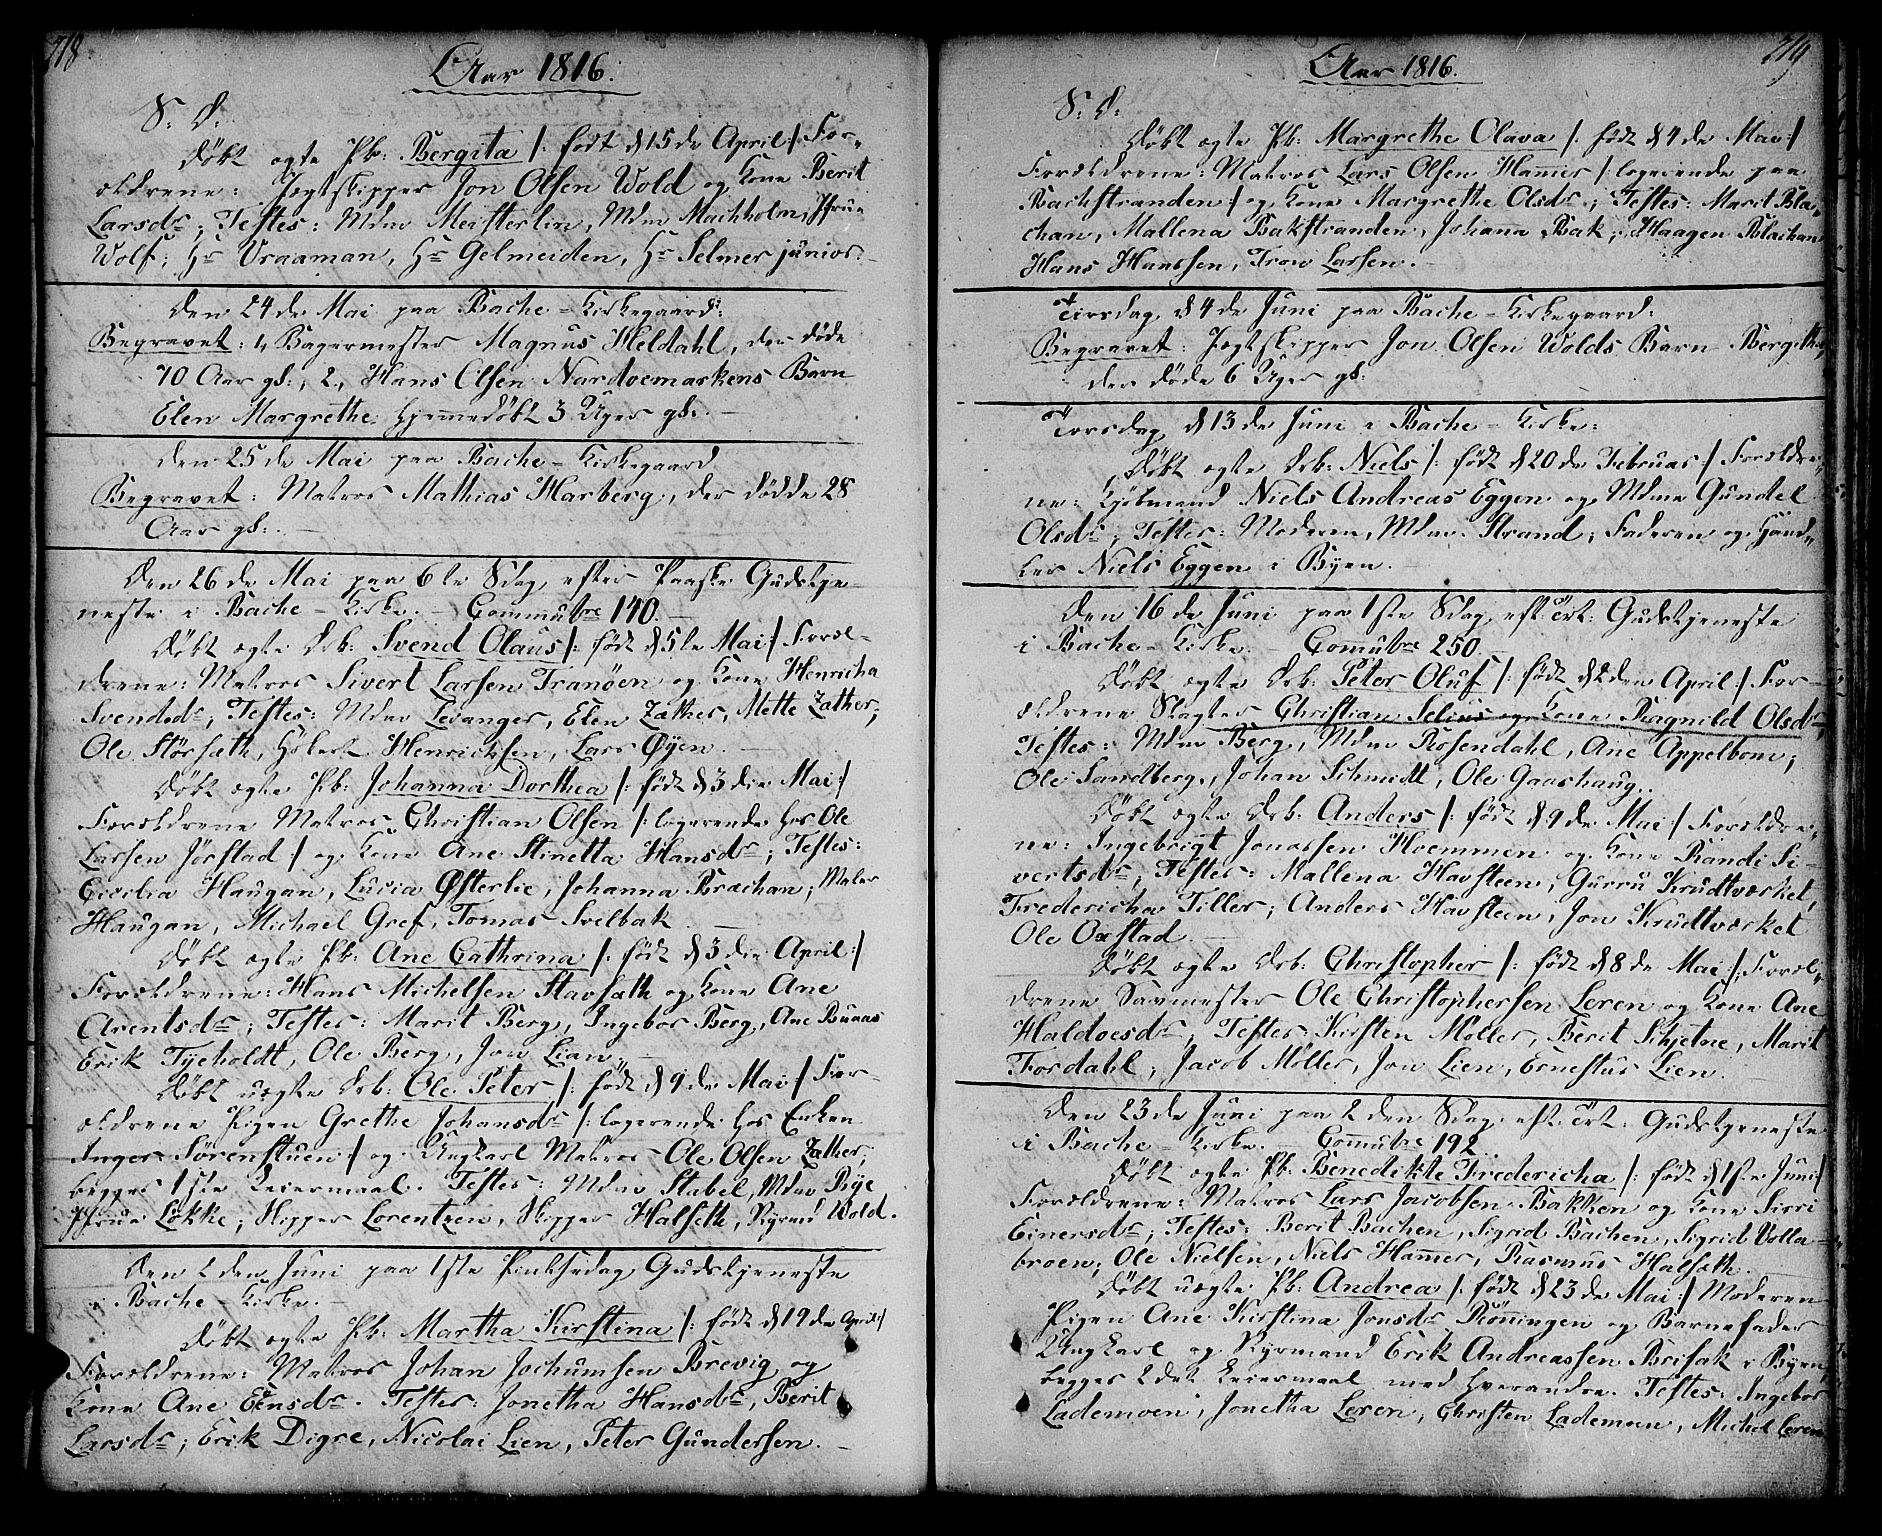 218
Aar 1816.
S: D:
Døbt ægte Pb: Bergita /: født d 15 de April :/ For-
ældrene: Jægtskipper Jon Olsen Wold og Kone Berit
Larsdr; Testes: Mdm Meisterlin, Mdm Machholm, Jfrue
Wolf; Hr Vraaman, Hr Gelmeiden, Hr Selmer junior.
Den 24 de Mai paa Bache-Kirkegaard:
Begravet: 1, Bagermester Magnus Heldahl, der døde
70 Aar gl:, 2, Hans Olsen Nardvemarkens Barn
Elen Margrethe hjemmedøbt 3 Uger gl:.
Den 25 de Mai paa Bache-Kirkegaard
Begravet: Matros Mathias Harberg, der dødde 28
Aar gl:.
Den 26 de Mai paa 6te Sdag efter Paaske Gudstje-
neste i Bache-Kirke. Commubre 140.
Døbt ægte Drb: Svend Olaus /: født d 5 te Mai :/ Foræl-
drene: Matros Sivert Larsen Tranøen og Kone Henricha
Svendsdr; Testes: Mdm Levanger, Elen Zæther, Mette Zæther;
Ole Størsæth, Henrichsen, Lars Øyen.
Døbt ægte Pb: Johanna Dorthea /: født d 3 die Mai :/
Forældrene Matros Christian Olsen /: logerende hos Ole
Larsen Jørstad :/ og Kone Ane Stinetta Hansdr; Testes:
Cicilia Haugan, Lucia Østerlie, Johanna Brachan; Maler
Haugan, Michael Gref, Tomas Svelbak.
Døbt ægte Pb: Ane Cathrina /: født d 3 die April :/
Forældrene: Hans Michelsen Stavsæth og Kone Ane
Arentsdr; Testes: Marit Berg, Ingebor Berg, Ane Bunas
Erik Tyeholdt, Ole Berg, Jon Lian.
Døbt uægte Drb: Ole Peter /: født d 9 de Mai :/ For-
ældrene Pigen Grethe Johansdr /: logerende hos Enken
Inger Sørenstuen :/ og Ungkarl Matros Ole Olsen Zæther;
begges 1ste Leiermaal. Testes: Mdm Stabel, Mdm Bye
Jfrue Løkke; Skipper Lorentzen, Skipper Halseth, Styrmd Wold.
Den 2 den Juni paa 1ste Pintsedag Gudstjeneste
i Bache-Kirke.
Døbt ægte Pb: Martha Kirstina /: født d 19 de April :/
Forældrene: Matros Johan Jochumsen Brevig og
Kone Ane Eensdr. Testes: Jonetha Hansdr, Berit
Larsdr; Erik Digre, Nicolai Lien, Peter Gundersen.
219
Aar 1816.
S: D:
Døbt ægte Pb: Margrethe Olava /: født d 4 de Mai :/
Forældrene: Matros Lars Olsen Hammer /: logerende paa
Bachstranden :/ og Kone Margrethe Olsdr; Testes: Marit Bla-
chan, Mallena Bakstranden, Johana Bak; Haagen Blachan
Hans Hanssen, Tron Larsen.
Tirsdag d 4 de Juni paa Bache-Kirkegaard:
Begravet: Jægtskipper Jon Olsen Wolds Barn Bergitha
der døde 6 Uger gl:
Torsdag d 13 de Juni i Bache-Kirke:
Døbt ægte Drb: Niels /: født d 20 de Februar :/ Forældre-
ne: Kjøbmand Niels Andreas Eggen og Mdme Gundel
Olsdr; Testes: Moderen, Mdm Strand; Faderen og Hand-
ler Niels Eggen i Byen.
Den 16 de Juni paa 1ste Sdag eft: Trt: Gudstjeneste
i Bache-Kirke. Commubre 250.
Døbt ægte Drb: Peter Oluf /: født d 2 den April :/ For-
ældrene Slagter Christian Selius og Kone Ragnild Olsdr;
Testes: Mdm Berg, Mdm Rosendahl, Ane Appelbom;
Ole Sandberg, Johan Schmidt, Ole Gaashaug.
Døbt ægte Drb: Anders /: født d 9 de Mai :/ Forældre-
ne: Ingebrigt Jonassen Hoemmen og Kone Randi Si-
vertsdr; Testes: Mallena Havsteen, Gurru Krudtværket,
Fredericha Tiller; Anders Havsteen, Jon Krudtværket
Ole Oxstad.
Døbt ægte Drb: Christopher /: født d 8 de Mai :/ Foræl-
drene Savmester Ole Christophersen Leren og Kone Ane
Haldoesdr; Testes: Kirsten Møller, Berit Schjetne, Marit
Fordahl; Jacob Møller, Jon Lien, Ernestus Lien.
Den 23 de Juni paa 2 den Sdag eft: Trt: Gudstjeneste
i Bache-Kirke. Commubre 192.
Døbt ægte Pb: Benedikte Fredericha /: født d 1ste Juni :/
Forældrene: Matros Lars Jacobsen Bakken og Kone Sirri
Einersdr; Testes: Berit Bachen, Sigrid Bachen, Sigrid Volla-
broen; Ole Nielsen, Niels Hammer, Rasmus Halseth.
Døbt uægte Pb: Andrea /: født d 23 de Mai :/ Moderen
Pigen Ane Kirstina Jonsdr Rønningen og Barnefader
Ungkarl og Styrmand Erik Andreassen Brisak i Byen,
begges 2det Leiermaal med hverandre. Testes: Ingebor
Lademoen, Jonetha Leren; Christen Lademoen, Michel Leren